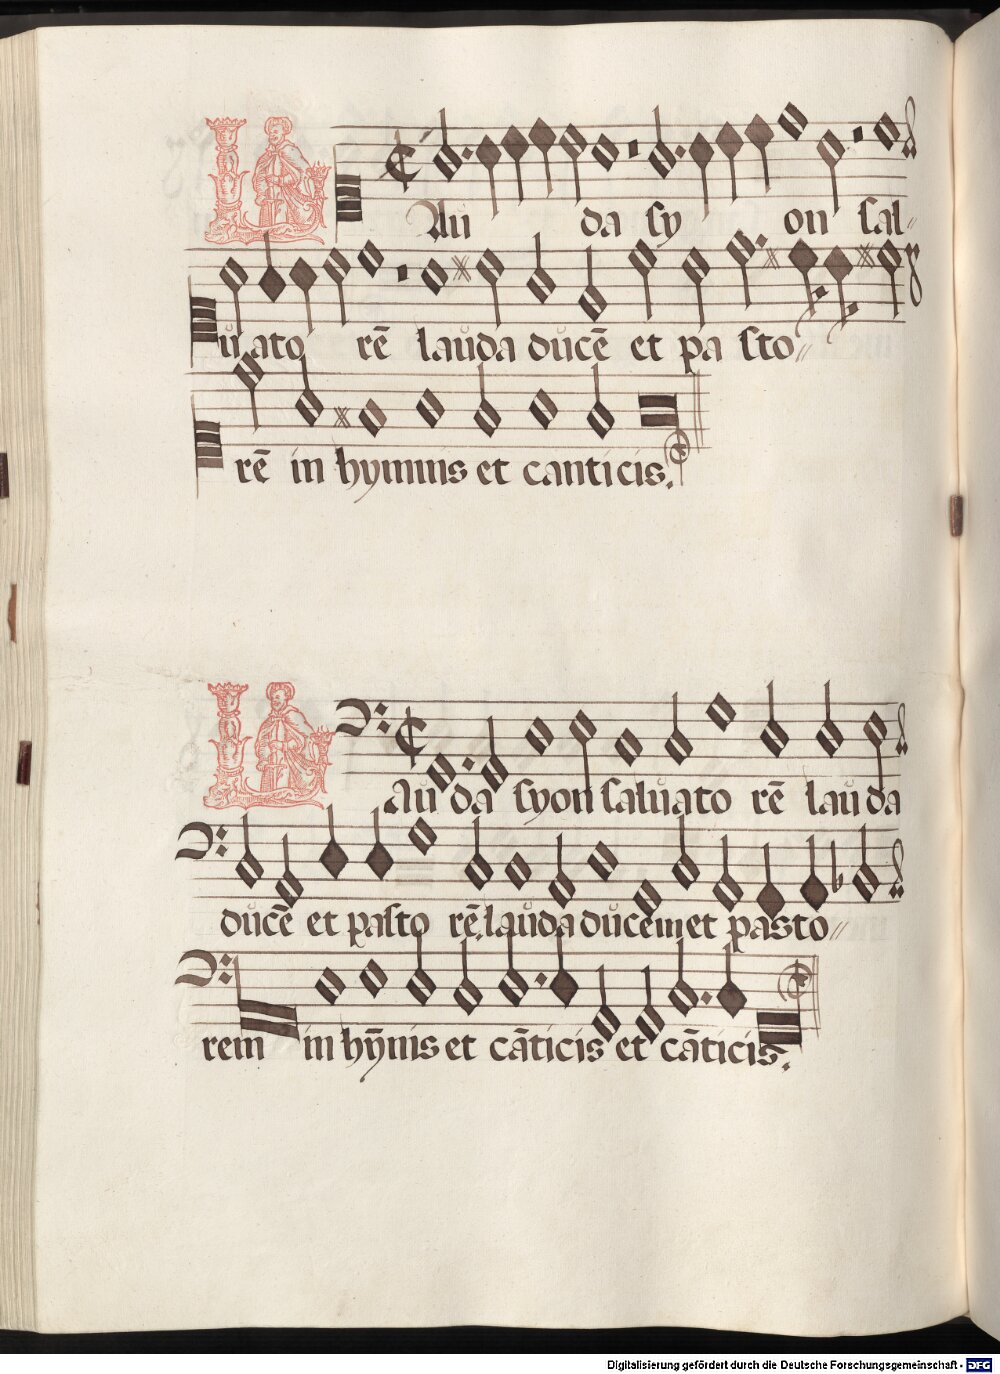 LAu da sy on sal-
uato rē lauda ducē et pa sto//
rē in hymnis et canticis.
LAu da syon saluato rē lauda
ducē et pasto rē, lauda ducem et pasto//
rem in hȳnis et cāticis et cāticis.
Digitalisierung gefördert durch die Deutsche Forschungsgemeinschaft - DFG